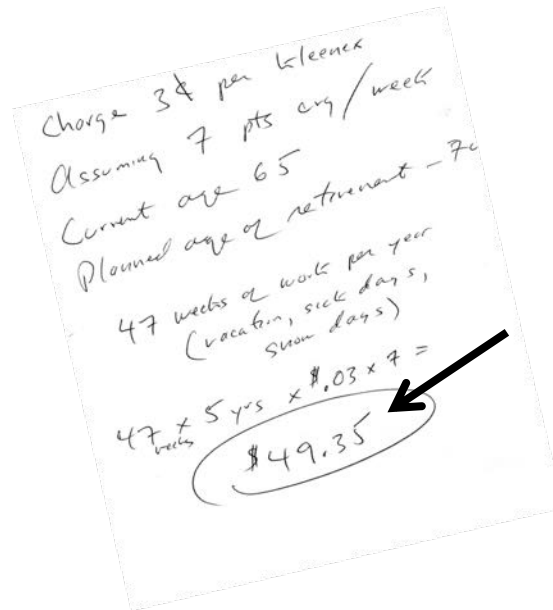 Charge 3¢ per kleenex
Assuming 7 pts cry/week
Current age 65
Planned age of retirement - 70
47 weeks of work per year
(vacation, sick days,
snow days)
47 weeks x 5 yrs x $.03 x 7 =
$49.35